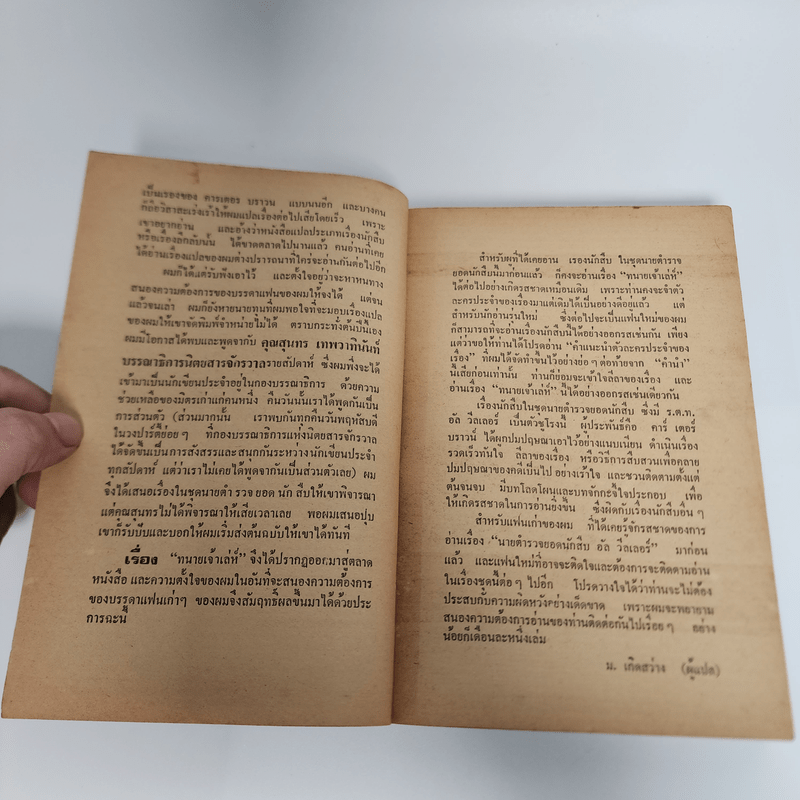 เป็นเรื่องของ คาร์เตอร์ บราวน์ แบบนี้อีก และบางคน
ก็ถือวิสาสะเร่งเร้าให้ผมแปลเรื่องต่อไปเสียโดยเร็ว เพราะ
เขาอยากอ่าน และอ้างว่าหนังสือแปลประเภทเรื่องนักสืบ
หรือเรื่องลึกลับนั้น ได้ขาดตลาดไปนานแล้ว คนอ่านที่เคย
ได้อ่านเรื่องแปลของผมต่างปรารถนาที่ใคร่จะอ่านกันต่อไปอีก
ผมก็ได้แต่รับฟังเอาไว้ และตั้งใจอยู่ว่าจะหาหนทาง
สนองความต้องการของบรรดาแฟนของผมให้จงได้ แต่จน
แล้วจนเล่า ผมก็ยังหานายทุนที่ผมพอใจที่จะมอบเรื่องแปล
ของผมให้เขาจัดพิมพ์จำหน่ายไม่ได้ ตราบกระทั่งต้นปีนี้เอง
ผมมีโอกาสได้พบและพูดจากับ คุณสุนทร เทพวาทีนันท์
บรรณาธิการนิตยสารจักรวาลรายสัปดาห์ ซึ่งผมพึ่งจะได้
เข้ามาเป็นนักเขียนประจำอยู่ในกองบรรณาธิการ ด้วยความ
ช่วยเหลือของมิตรเก่าแก่คนหนึ่ง คืนวันนั้นเราได้พูดกันเป็น
การส่วนตัว (ส่วนมากนั้น เราพบกันทุกคืนวันพฤหัสบดี
ในวงปาร์ตี้ย่อยๆ ที่กองบรรณาธิการแห่งนิตยสารจักรวาล
ได้จัดขึ้นเป็นการสังสรรและสนุกกันระหว่างนักเขียนประจำ
ทุกสัปดาห์ แต่ว่าเราไม่เคยได้พูดจากันเป็นส่วนตัวเลย) ผม
จึงได้เสนอเรื่องในชุดนายตำ รวจ ยอด นัก สืบให้เขาพิจารณา
แต่คุณสุนทรไม่ได้พิจารณาให้เสียเวลาเลย พอผมเสนอปุบ
เขาก็รับปับและบอกให้ผมเริ่มส่งต้นฉบับให้เขาได้ทันที
เรื่อง “ทนายเจ้าเล่ห์” จึงได้ปรากฏออกมาสู่ตลาด
หนังสือ และความตั้งใจของผมในอันที่จะสนองความต้องการ
ของบรรดาแฟนเก่าๆ ของผมจึงสัมฤทธิ์ผลขึ้นมาได้ด้วยประ
การฉะนี้
สำหรับผู้ที่ได้เคยอ่าน เรื่องนักสืบ ในชุดนายตำรวจ
ยอดนักสืบนี้มาก่อนแล้ว ก็คงจะอ่านเรื่อง “ทนายเจ้าเล่ห์”
ได้ต่อไปอย่างเกิดรสชาดเหมือนเดิม เพราะท่านคงจะจำตัว
ละครประจำของเรื่องมาแต่เดิมได้เป็นอย่างดีอยู่แล้ว แต่
สำหรับนักอ่านรุ่นใหม่ ซึ่งต่อไปจะเป็นแฟนใหม่ของผม
ก็สามารถที่จะอ่านเรื่องนักสืบนี้ได้อย่างออกรสเช่นกัน เพียง
แต่ว่าขอให้ท่านได้โปรดอ่าน “คำแนะนำตัวละครประจำของ
เรื่อง” ที่ผมได้จัดทำขึ้นไว้อย่างย่อๆ ต่อท้ายจาก “คำนำ”
นี้เสียก่อนเท่านั้น ท่านก็ย่อมจะเข้าใจลีลาของเรื่อง และ
อ่านเรื่อง “ทนายเจ้าเล่ห์” นี้ได้อย่างออกรสเช่นเดียวกัน
เรื่องนักสืบในชุดนายตำรวจยอดนักสืบ ซึ่งมี ร.ต.ท.
อัล วีลเลอร์ เป็นตัวชูโรงนี้ ผู้ประพันธ์คือ คาร์ เตอร์
บราวน์ ได้ผูกปมปฤษณาเอาไว้อย่างแนบเนียน ดำเนินเรื่อง
รวดเร็วทันใจ ลีลาของเรื่อง หรือวิธีการสืบสวนเพื่อคลาย
ปมปฤษณาของคดีเป็นไป อย่างเร้าใจ และชวนติดตามตั้งแต่
ต้นจนจบ มีบทโลดโผนและบทจักกะจี้ใจประกอบ เพื่อ
ให้เกิดรสชาดในการอ่านยิ่งขึ้น ซึ่งผิดกับเรื่องนักสืบอื่นๆ
สำหรับแฟนเก่าของผม ที่ได้เคยรู้จักรสชาดของการ
อ่านเรื่อง “นายตำรวจยอดนักสืบ อัล วีลเลอร์” มาก่อน
แล้ว และแฟนใหม่ที่อาจจะติดใจและต้องการจะติดตามอ่าน
ในเรื่องชุดนี้ต่อๆ ไปอีก โปรดวางใจได้ว่าท่านจะไม่ต้อง
ประสบกับความผิดหวังอย่างเด็ดขาด เพราะผมจะพยายาม
สนองความต้องการอ่านของท่านติดต่อกันไปเรื่อยๆ อย่าง
น้อยก็เดือนละหนึ่งเล่ม
ม. เกิดสว่าง (ผู้แปล)